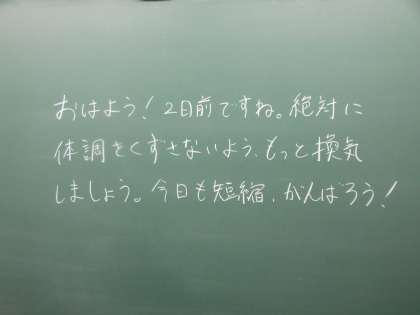 おはよう！2日前ですね。絶対に
体調をくずさないよう、もっと換気
しましょう。今日も短縮、がんばろう！